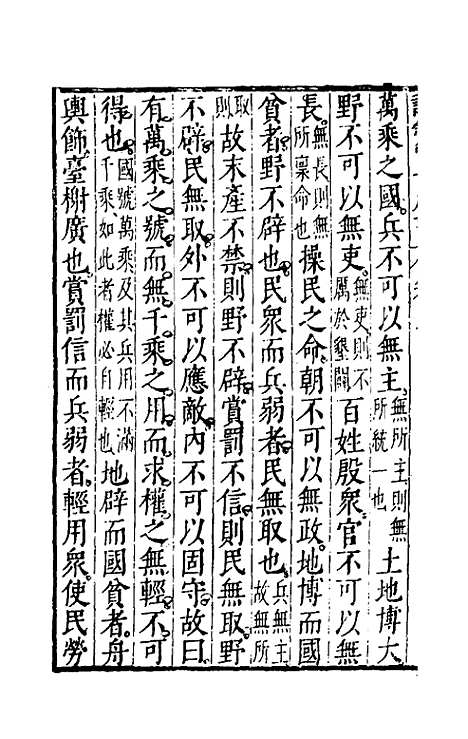 萬乘之國兵不可以無主無所主則無所統一也土地博大
野不可以無吏無吏則不厲於墾闢百姓殷衆官不可以無
長無長則無所稟命也操民之命朝不可以無政地博而國
貧者野不辟也民衆而兵弱者民無取也兵無主故無所
取則故末產不禁則野不辟賞罰不信則民無取野
不辟民無取外不可以應敵內不可以固守故曰
有萬乘之號而無千乘之用而求權之無輕不可
得也國號萬乘及其兵用不滿千乘如此者權必自輕也地辟而國貧者舟
輿飾臺榭廣也賞罰信而兵弱者輕用衆使民勞